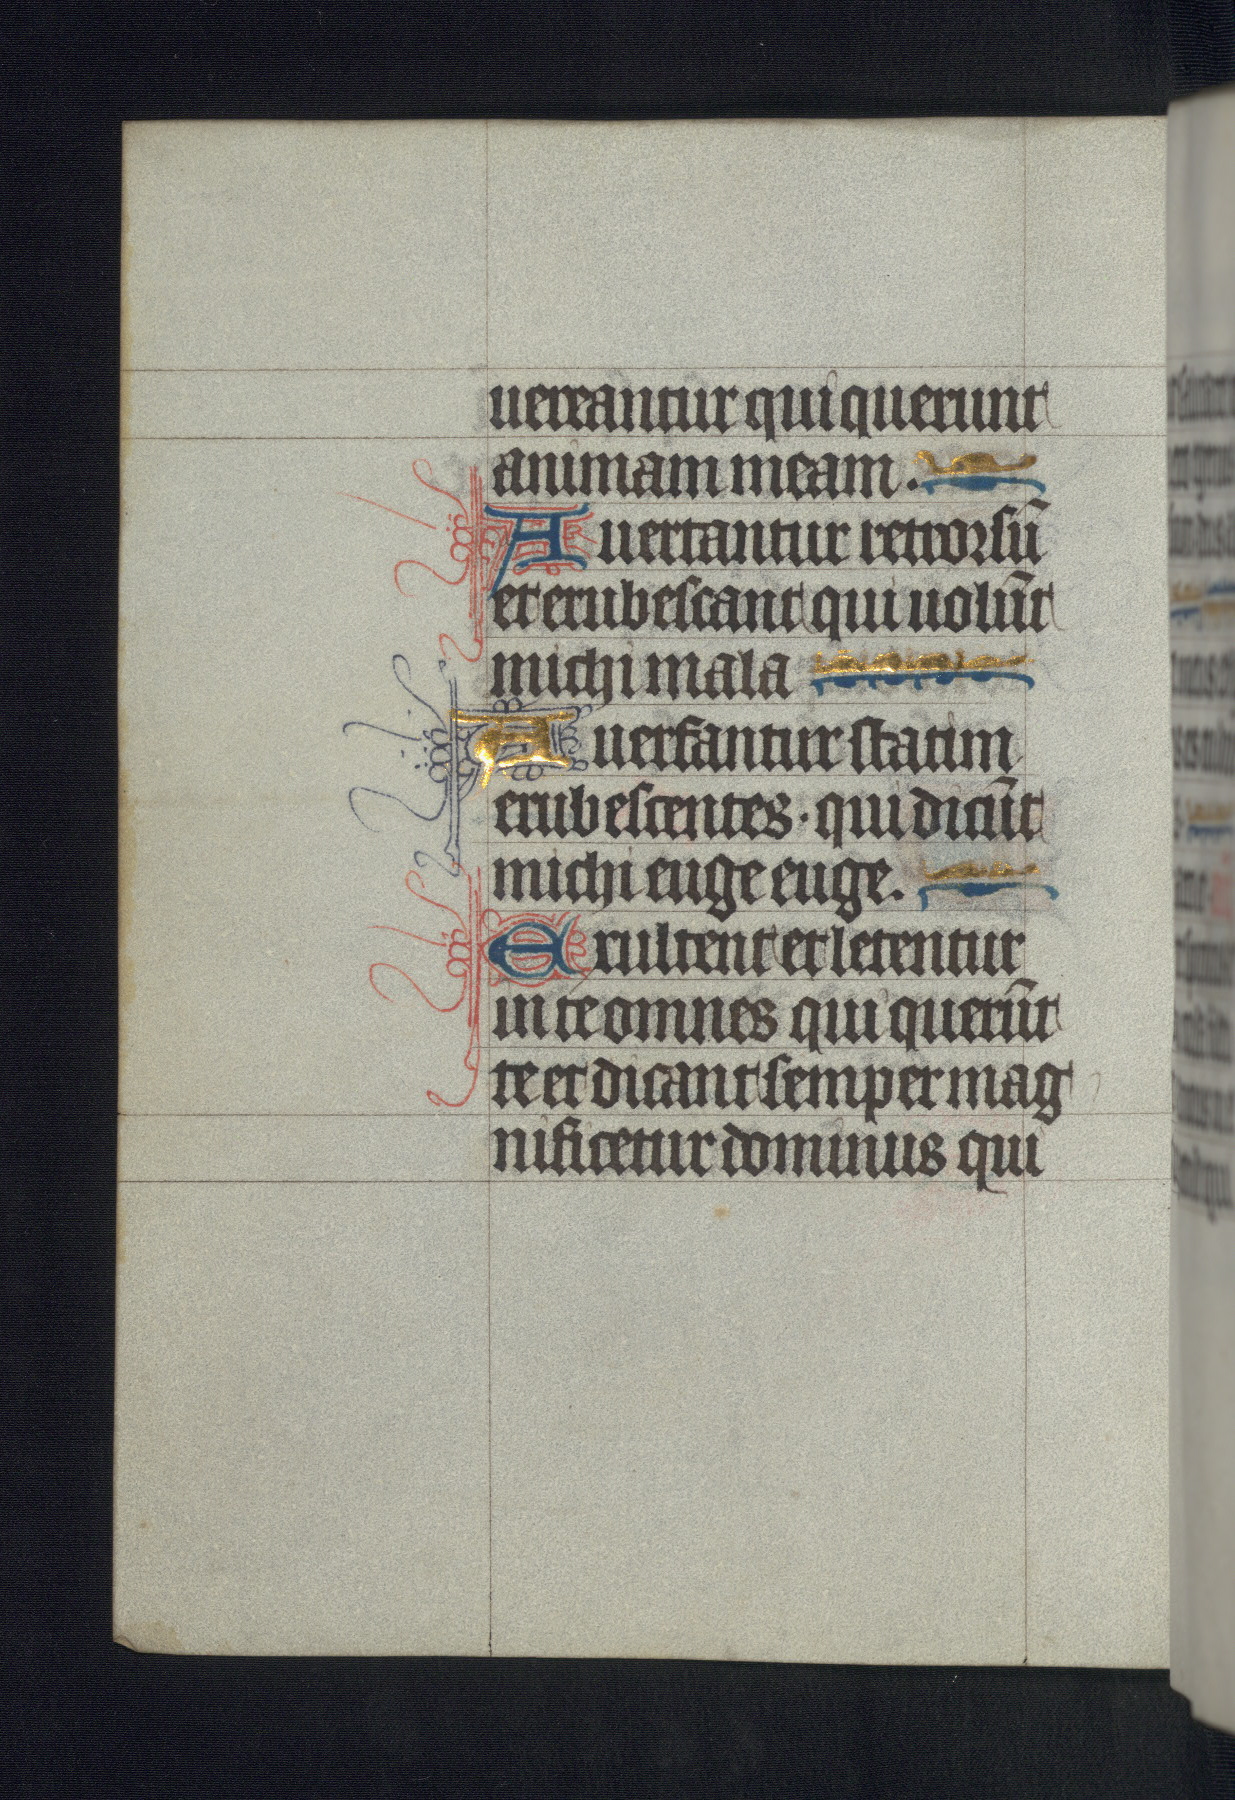 uereantur qui querunt
animam meam.
Auertantur retrorsū
et erubescant qui uolūt
michi mala
Auersantur statim
erubescentes· qui dicūt
michi euge euge.
Exultent et letentur
in te omnes qui querūt
te et dicant semper mag
nificetur dominus qui